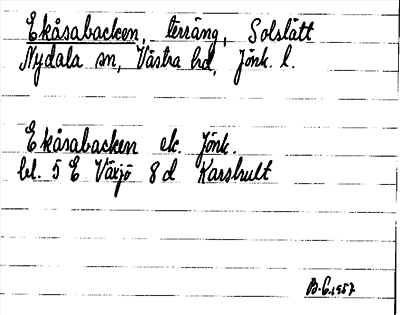 Ekåsabacken, terräng, Solslätt
Nydala sn, Västra hd, Jönk. l.
Ekåsabacken ek. Jönk.
bl. 5 E Växjö 8 d Karshult
B.E. 1957